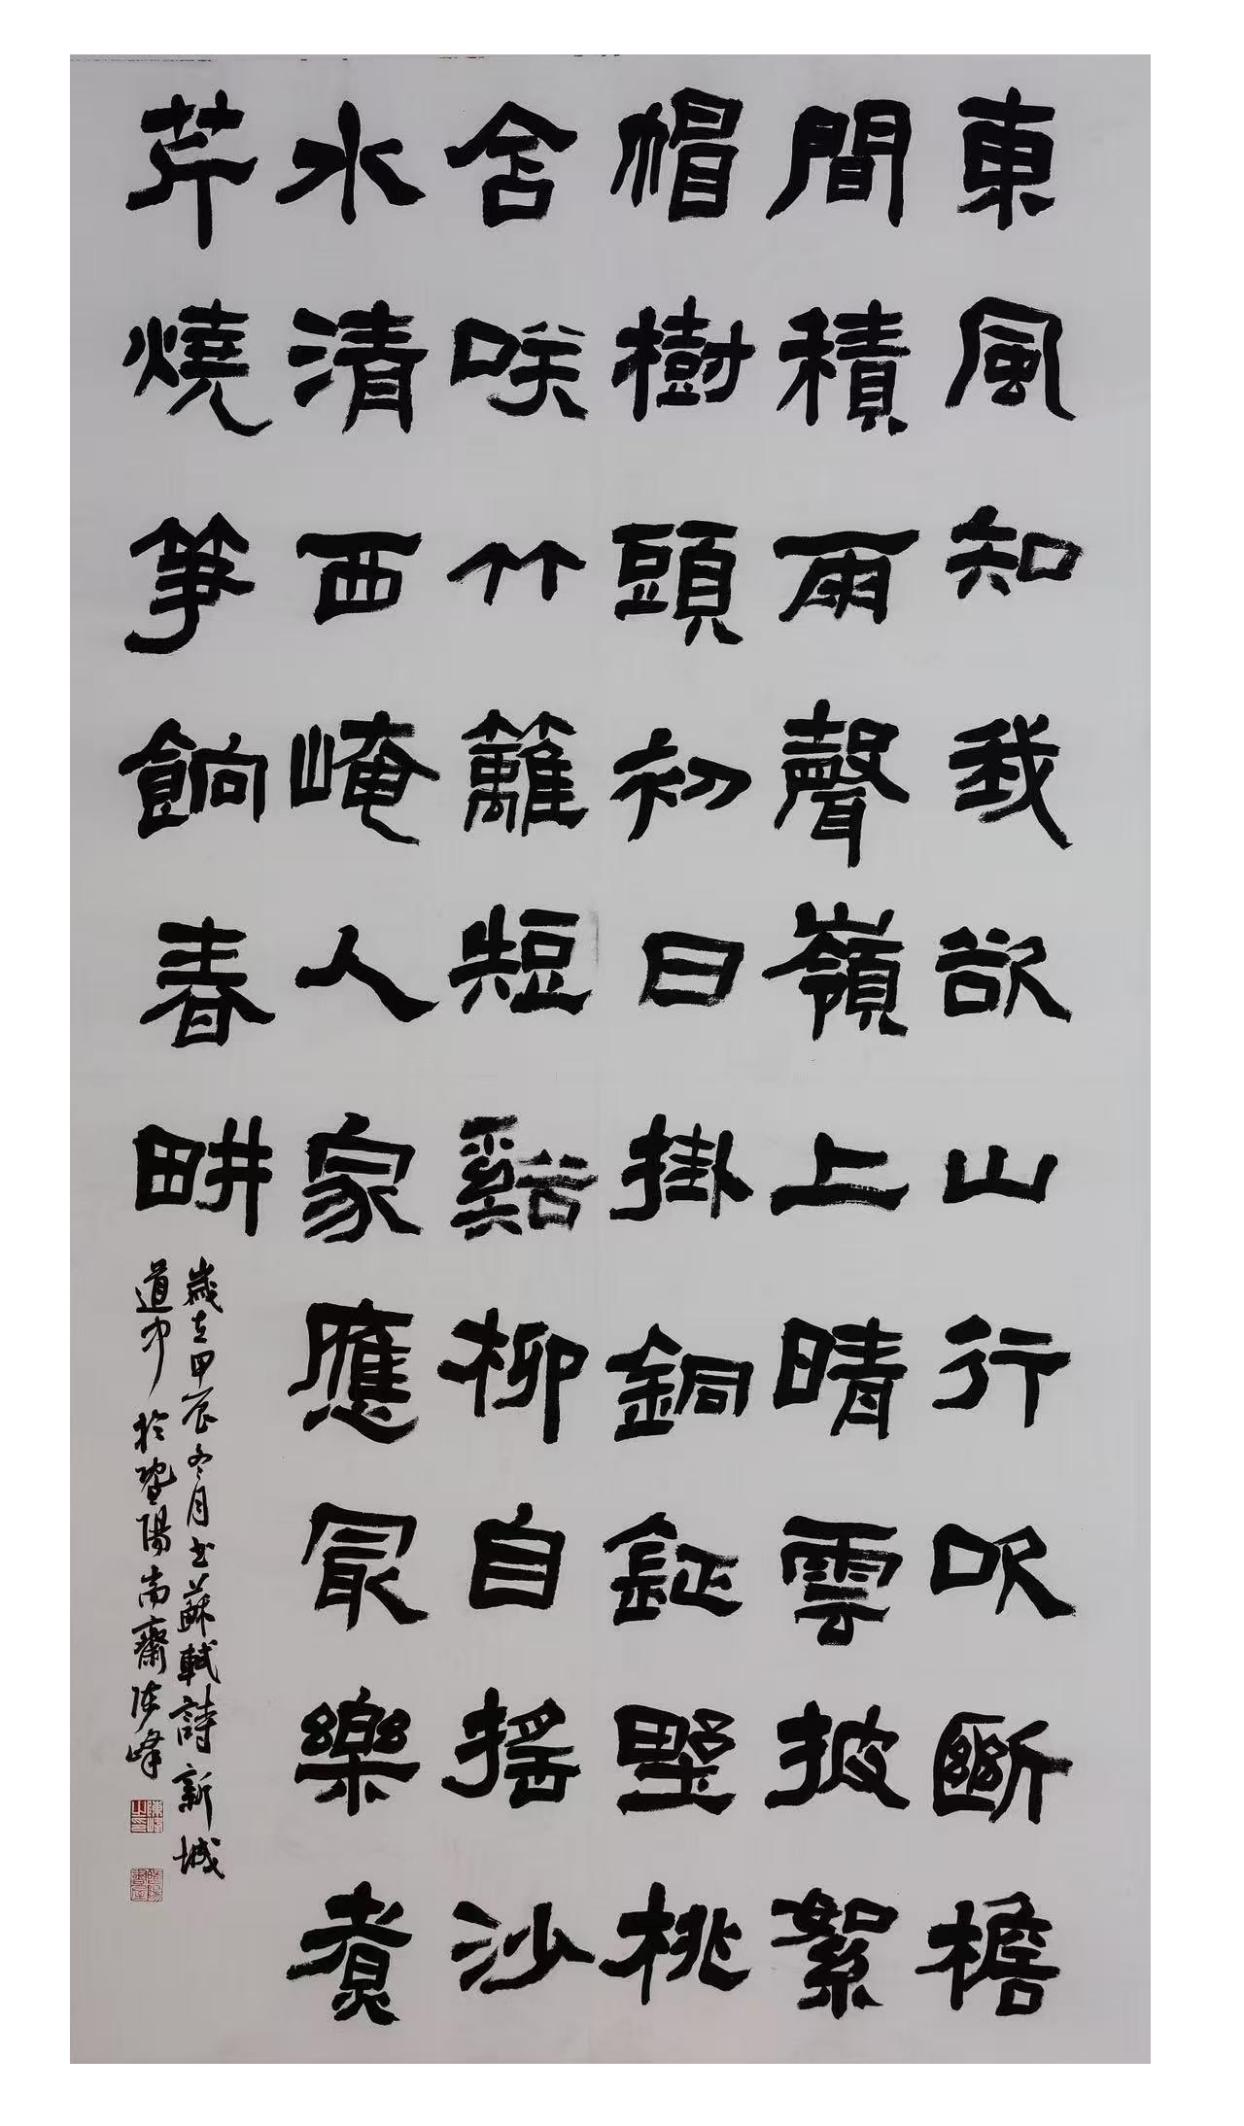 東風知我欲山行吹斷檐
間積雨聲嶺上晴雲披絮
帽樹頭初日掛銅鉦墅桃
含咲竹籬短谿柳自搖沙
水清西崦人家應冣樂煑
芹燒笋餉春畊
歲在甲辰冬月書蘇軾詩新城
道中於暨陽尚齋陳峰
陳峰之印